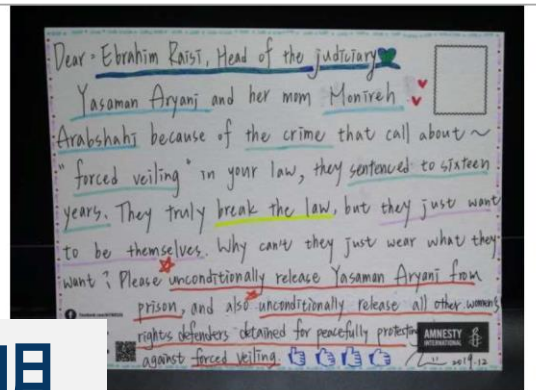 Dear : Ebrahim Raisi, Head of the judiciary
Yasaman Aryani and her mom Monireh
Arabshahi because of the crime that call about ~
"forced veiling" in your law, they sentenced to sixteen
years. They truly break the law, but they just want
to be themselves. Why can't they just wear what they
want? Please unconditionally release Yasaman Aryani from
prison, and also unconditionally release all other women's
rights defenders detained for peacefully protesting
against forced veiling.
AMNESTY
INTERNATIONAL
2019.12